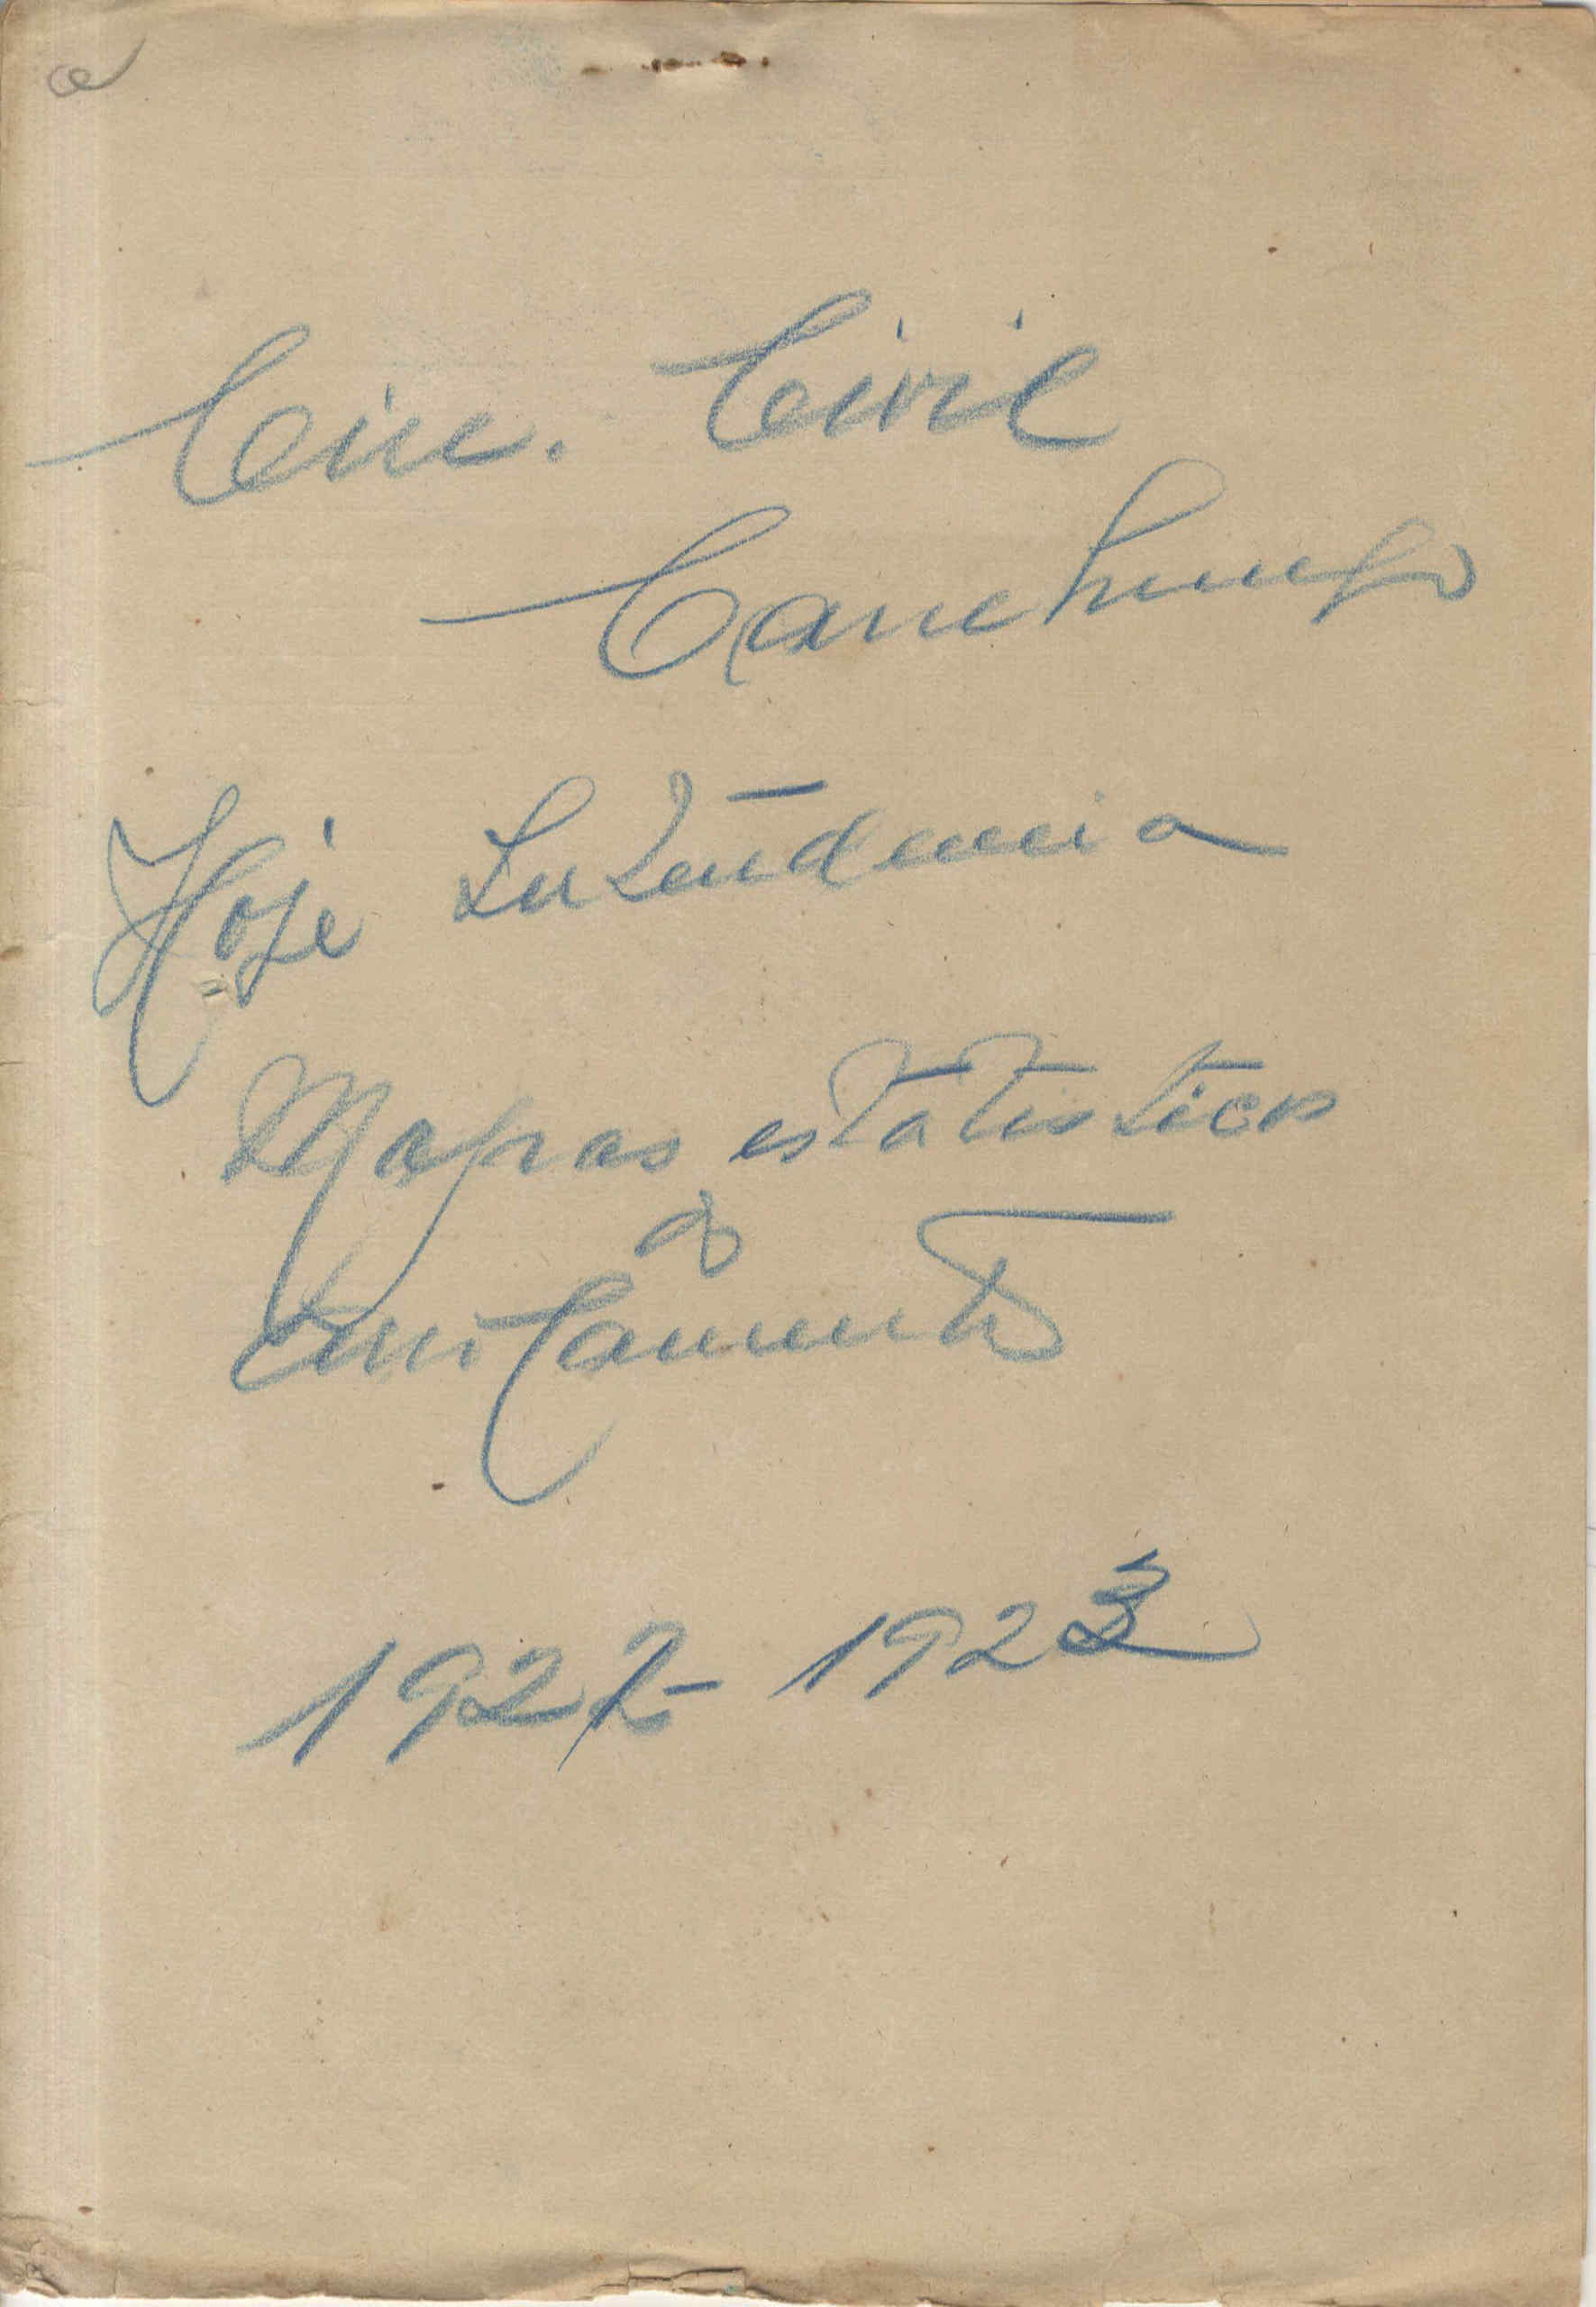 Circ. Civil
Canchungo
Hoje Intendencia
Mapas estatisticos
de
1922 - 1923